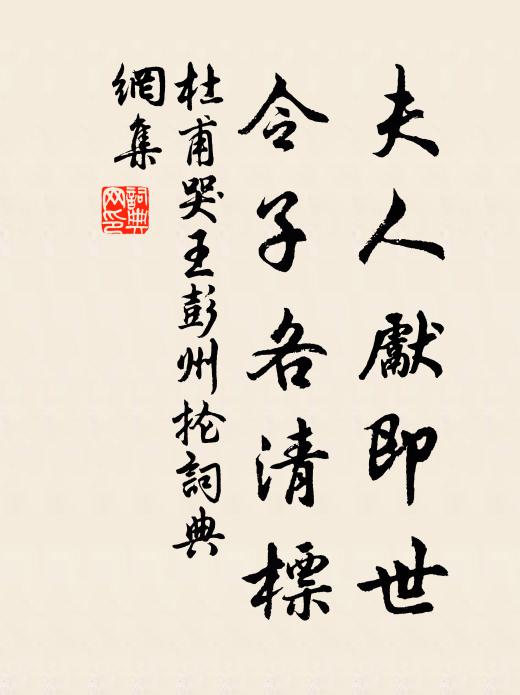 夫人獻即世
令子各清標
杜甫哭王彭州抡詞典
網集
詞典網印